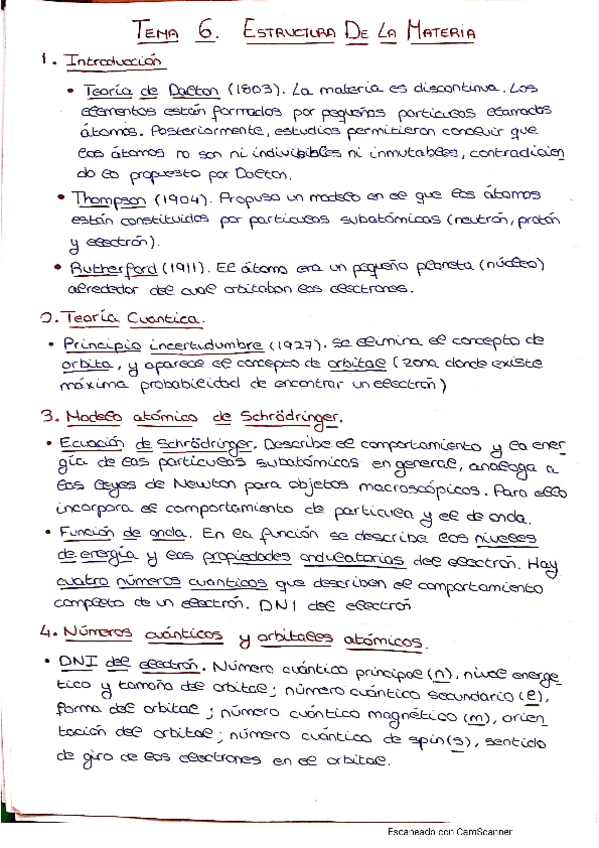 TEMA 6. ESTRUCTURA DE LA MATERIA
1. Introducción
• Teoría de Dalton (1803). La materia es discontinua. Los
elementos están formados por pequeñas partículas llamadas
átomos. Posteriormente, estudios permitieron concluir que
los átomos no son ni indivisibles ni inmutables, contradicien
do lo propuesto por Dalton.
• Thompson (1904). Propuso un modelo en el que los átomos
están constituidos por partículas subatómicas (neutrón, protón
y electrón).
• Rutherford (1911). El átomo era un pequeño planeta (núcleo)
alrededor del cual orbitaban los electrones.
2. Teoría Cuantica.
• Principio incertudumbre (1927). Se elimina el concepto de
orbita, y aparece el concepto de orbital (zona donde existe
máxima probabilidad de encontrar un electrón)
3. Modelo atómico de Schrödringer.
• Ecuación de Schrödringer. Describe el comportamiento y la ener
gía de las partículas subatómicas en general, análoga a
las leyes de Newton para objetos macroscópicos. Para ello
incorpora el comportamiento de partícula y el de onda.
• Función de onda. En la función se describe los niveles
de energía y las propiedades ondulatorias del electrón. Hay
cuatro números cuanticos que describen el comportamiento
completo de un electron. DNI del electrón
4. Números cuánticos y orbitales atómicos.
• DNI del electrón. Número cuántico principal (n), nivel energe
tico y tamaño del orbital; número cuántico secundario (l),
forma del orbital; número cuántico magnético (m), orien
tación del orbital; número cuántico de spin(s), sentido
de giro de los electrones en el orbital.
Escaneado con CamScanner